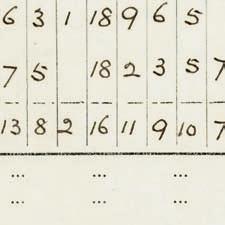 6 3 1 18 9 6 5
7 5 18 2 3 5 7
13 8 2 16 11 9 10 7
... ... ...
... ... ...